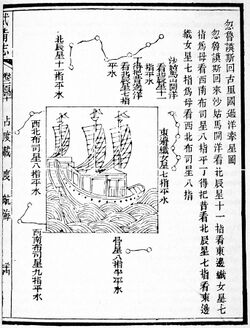 忽魯謨斯回古里國過洋牽星圖
忽魯謨斯回來沙姑馬開洋看北辰星十一指看東邊織女星七
指為母看西南布司星八指平丁得把昔看北辰星七指看東邊
織女星七指為母看西北布司星八指
沙姑馬山開洋
看北辰星十一
指平水
丁得把昔過洋
看北辰星七指
平水
北辰星十一指平水
東邊織女星七指平水
西北布司星八指平水
骨星八指半平水
西南布司星九指平水
武備志
占度載 度 航海